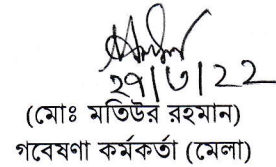 ২৭/৩/22
(মোঃ মতিউর রহমান)
গবেষণা কর্মকর্তা (মেলা)